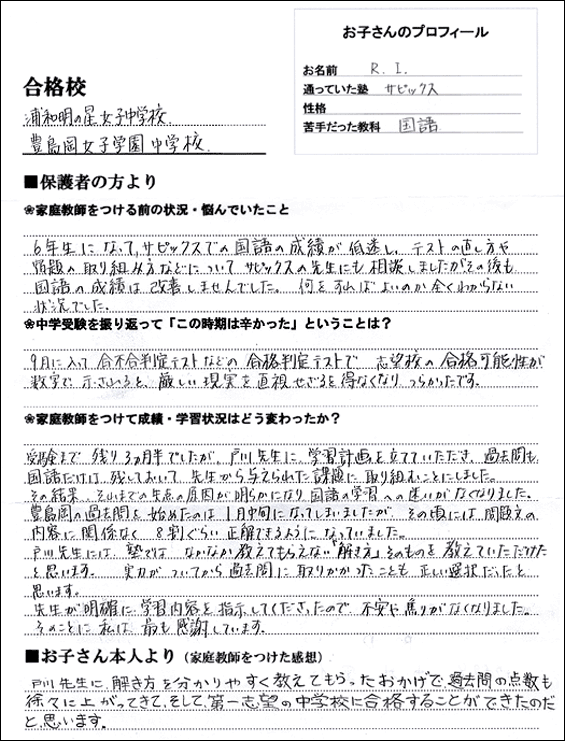 お子さんのプロフィール
お名前 R. I.
通っていた塾 サピックス
性格
苦手だった教科 国語
合格校
浦和明の星女子中学校
豊島岡女子学園中学校
■保護者の方より
❀家庭教師をつける前の状況・悩んでいたこと
6年生になって、サピックスでの国語の成績が低迷し、テストの直し方や
問題の取り組み方などについてサピックスの先生にも相談しましたがその後も
国語の成績は改善しませんでした。何をすればよいのか全くわからない
状況でした。
❀中学受験を振り返って「この時期は辛かった」ということは？
9月に入って合不合判定テストなどの合格判定テストで 志望校の合格可能性が
数字で示されると、厳しい現実を直視せざるを得なくなりつらかったです。
❀家庭教師をつけて成績・学習状況はどう変わったか？
受験まで残り3ヵ月半でしたが、戸川先生に学習計画を立てていただき、過去問も
国語だけは残しておいて先生から与えられた課題に取り組むことにしました。
その結果、それまでの失点の原因が明らかになり国語の学習への迷いがなくなりました。
豊島岡の過去問を始めたのは1月中旬になってしまいましたが、その頃には問題文の
内容に関係なく8割ぐらい正解できるようになっていました。
戸川先生には、塾ではなかなか教えてもらえない「解き方」そのものを教えていただけた
と思います。 実力がついてから過去問に取りかかったことも正しい選択だったと
思います。
先生が明確に学習内容を指示してくださったので不安や焦りがなくなりました。
そのことに私は最も感謝しています。
■お子さん本人より（家庭教師をつけた感想）
戸川先生に解き方を分かりやすく教えてもらったおかげで、過去問の点数も
徐々に上がってきて、そして、第一志望の中学校に合格することができたのだ
と思います。